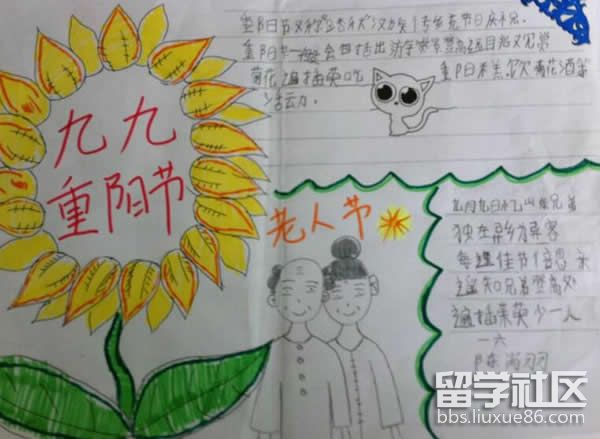 九九
重阳节
重阳节又称"踏秋"汉族传统节日庆祝
重阳节一般会包括出游赏景登高远目始又观赏
菊花遍插茱萸吃重阳米羔、饮菊花酒等
活云力.
老人节
九月九日忆山东兄弟
独在异乡为异客
每逢佳节倍思亲
遥知兄弟登高处
遍插茱萸少一人
一六
留学社区
bbs.liuxue86.com